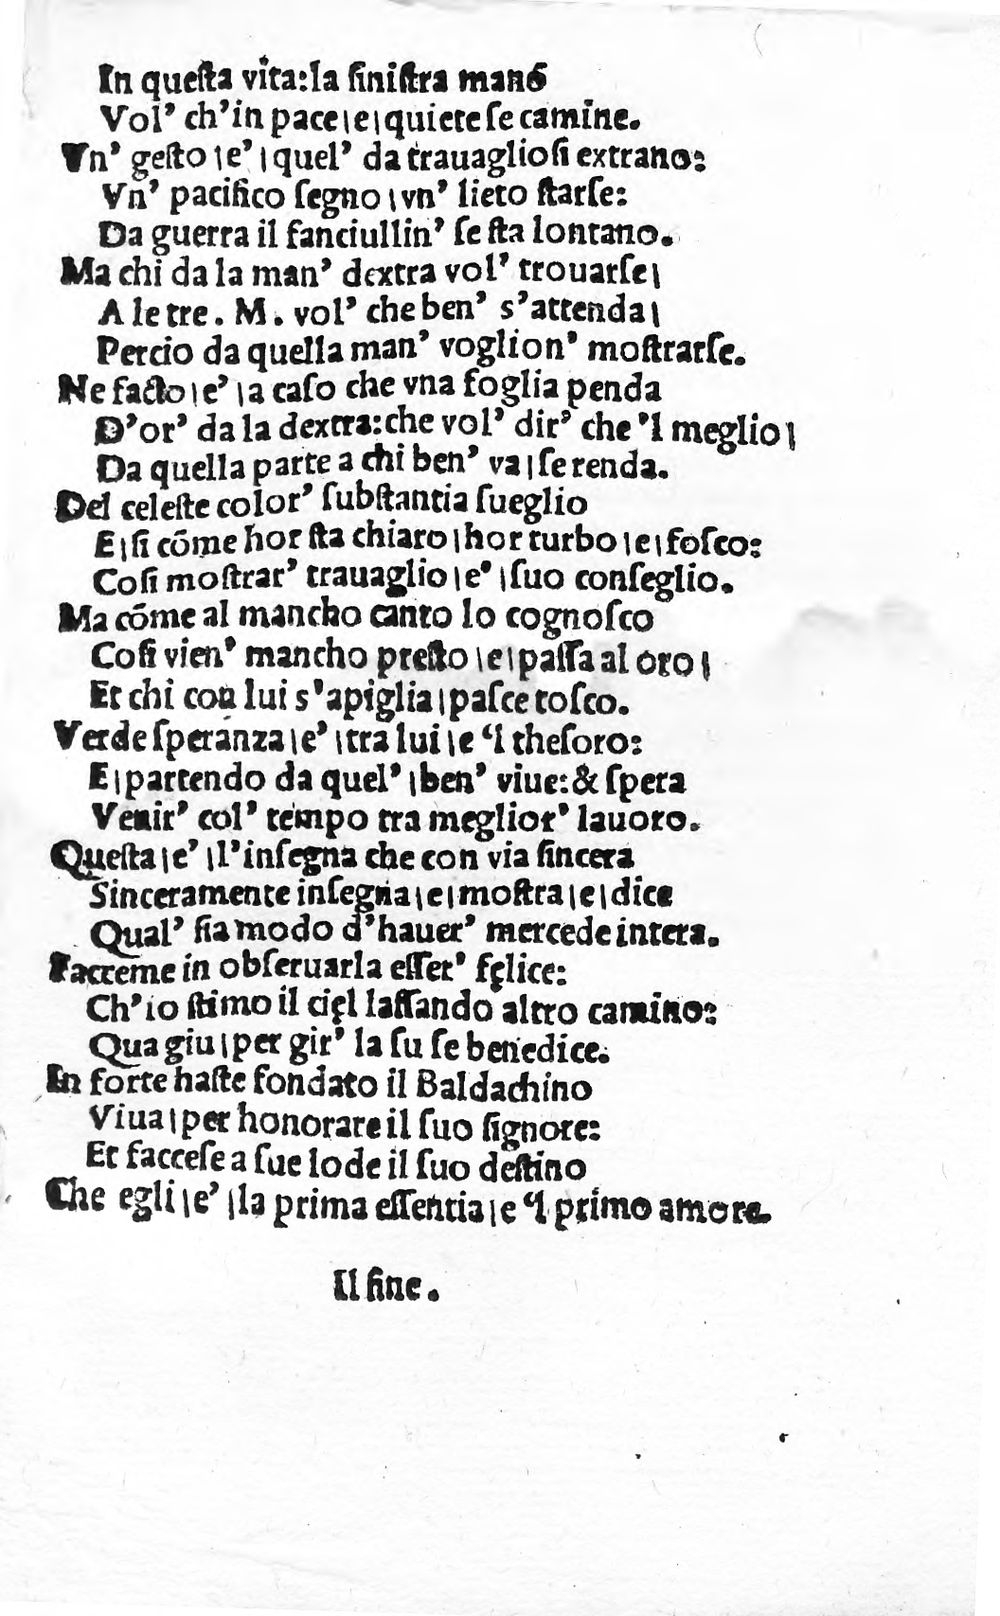 In queſta vita:la ſiniſtra mano
Vol’ ch’in pace|e|quiete ſe camine.
Vn’ geſto |e’ |quel’ da trauaglioſi extrano:
Vn’ pacifico ſegno|vn’ lieto ſtarſe:
Da guerra il fanciullin’ ſe ſta lontano.
Ma chi da la man’ dextra vol’ trouarſe|
A le tre . M . vol’ che ben’ s’attenda|
Percio da quella man’ voglion’ moſtrarſe.
Ne facto|e’ |a caſo che vna foglia penda
D’or’ da la dextra:che vol’ dir’ che ’l meglio|
Da quella parte a chi ben’ va|ſe renda.
Del celeſte color’ ſubſtantia ſueglio
E|ſi cōme hor ſta chiaro|hor turbo|e|foſco:
Coſi moſtrar’ trauaglio|e’ |ſuo conſeglio.
Ma cōme al mancho canto lo cognoſco
Coſi vien’ mancho preſto |e|paſſa al oro|
Et chi con lui s’apiglia|paſce toſco.
Verde ſperanza|e’ |tra lui|e ‘l theſoro:
E|partendo da quel’ |ben’ viue:& ſpera
Venir’ col’ tempo tra meglior’ lauoro.
Queſta|e’ |l’inſegna che con via ſincera
Sinceramente inſegna|e|moſtra|e|dice
Qual’ ſia modo d’hauer’ mercede intera.
Facceme in obſeruarla eſſer’ felice:
Ch’io ſtimo il ciel laſſando altro camino:
Qua giu|per gir’ la ſu ſe benedice.
In forte haſte fondato il Baldachino
Viua|per honorare il ſuo ſignore:
Et facceſe a ſue lode il ſuo deſtino
Che egli|e’ |la prima eſſentia|e ‘l primo amore.
Il fine.